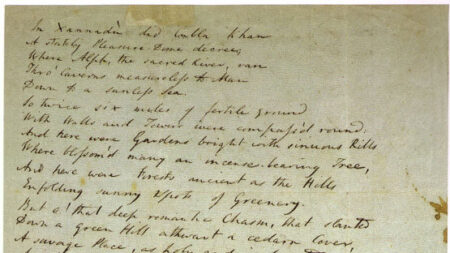 In Xannadù did Cubla Khan
A stately Pleasure-Dome decree;
Where Alph, the sacred River, ran
Thro' Caverns measureless to Man
Down to a sunless Sea.
So twice six miles of fertile ground
With Walls and Towers were compass'd round:
And here were Gardens bright with sinuous Rills
Where blossom'd many an incense-bearing Tree,
And here were Forests ancient as the Hills
Enfolding sunny Spots of Greenery.
But o! that deep romantic Chasm, that slanted
Down a green Hill athwart a cedarn Cover,
A savage Place, as holy and